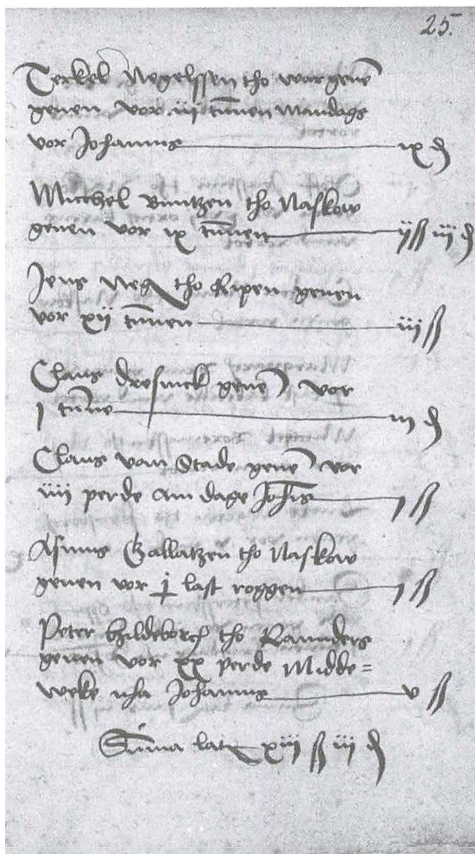 25.
Terkel Negelssen tho
geuen vor iii tun̄en Mandags
vor Johannis ix ₰
Michel Buntzen tho Naskow
geuen vor ix tun̄en ij ß iij ₰
Jens tho Ripen geuen
vor xij tun̄en iij ß
Claus Dresmek geuē vor
j tun̄e iij ₰
Claus vam Stade geuē vor
iiij perde am dage Joh̄is j ß
Asmus Gallatzen tho Naskow
geuen vor last roggen j ß
Peter Hildeborch tho Raunders
geuen vor xx perde Midde=
weke nha Johannis v ß
Sum̄a lat xiij ß iij ₰